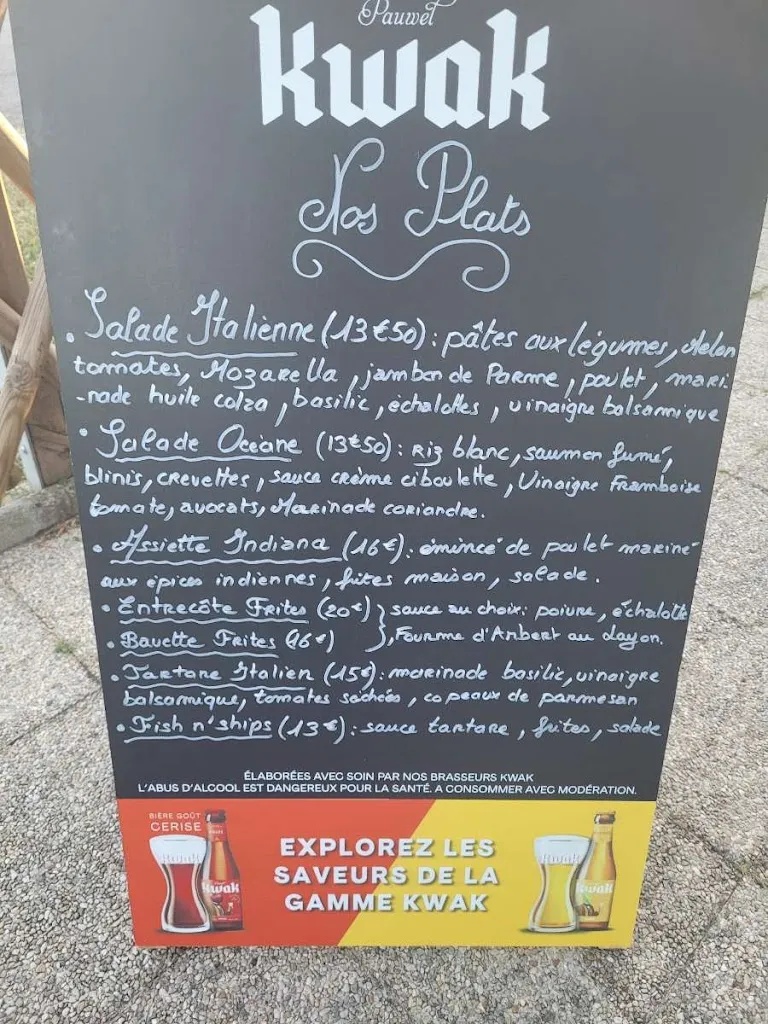 Pauwel
kwak
Nos Plats
• Salade Italienne (13€50) : pâtes aux légumes, Melon
tomates, Mozarella, jambon de Parme, poulet, mari
-nade huile colza, basilic, échalottes, vinaigre balsamique
• Salade Océane (13€50) : Riz blanc, saumon fumé,
blinis, crevettes, sauce crème ciboulette, Vinaigre Framboise
tomate, avocats, Marinade coriandre.
• Assiette Indiana (16€) : émincé de poulet mariné
aux épices indiennes, frites maison, salade.
• Entrecôte Frites (20€) } sauce au choix : poivre, échalotte
• Bavette Frites (16€) }, Fourme d'Ambert au layon.
• Tartare Italien (15€) : marinade basilic, vinaigre
balsamique, tomates séchées, copeaux de parmesan
• Fish n' ships (13€) : sauce tartare, frites, salade
ÉLABORÉES AVEC SOIN PAR NOS BRASSEURS KWAK
L'ABUS D'ALCOOL EST DANGEREUX POUR LA SANTÉ. A CONSOMMER AVEC MODÉRATION.
BIÈRE GOÛT
CERISE
kwak
kwak
EXPLOREZ LES
SAVEURS DE LA
GAMME KWAK
kwak
kwak